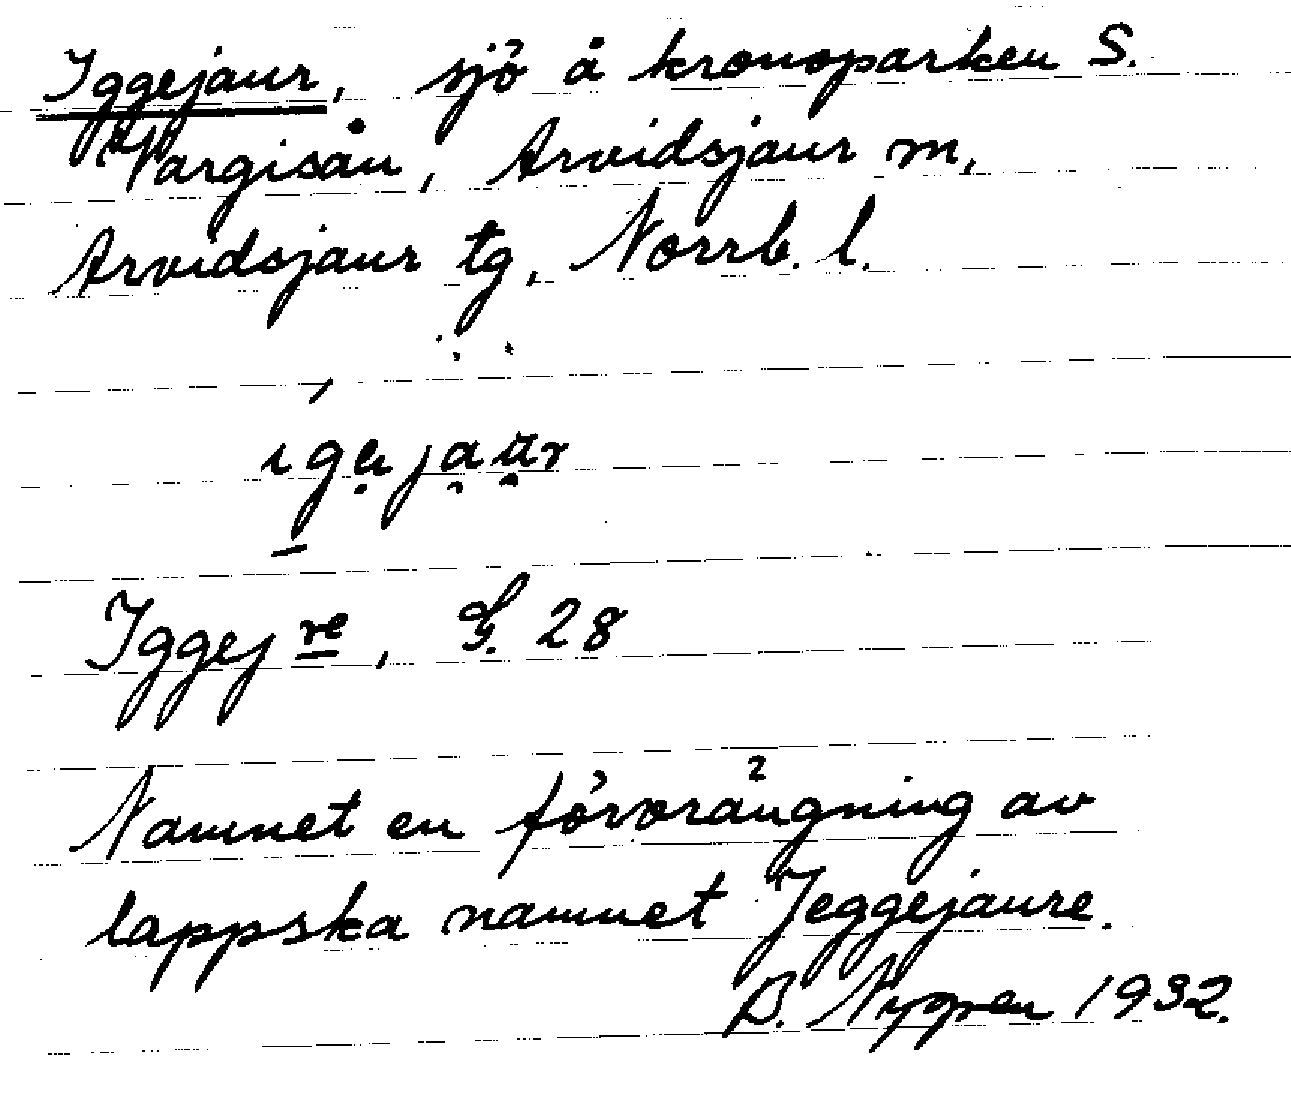 Iggejaur, sjö å kronoparken S.
Vargisån, Arvidsjaur m,
Arvidsjaur tg, Norrb. l.
ıgejaur
Iggejre, G. 28
Namnet en förvrängning av
lappska namnet Jeggejaure.
B. Nygren 1932.